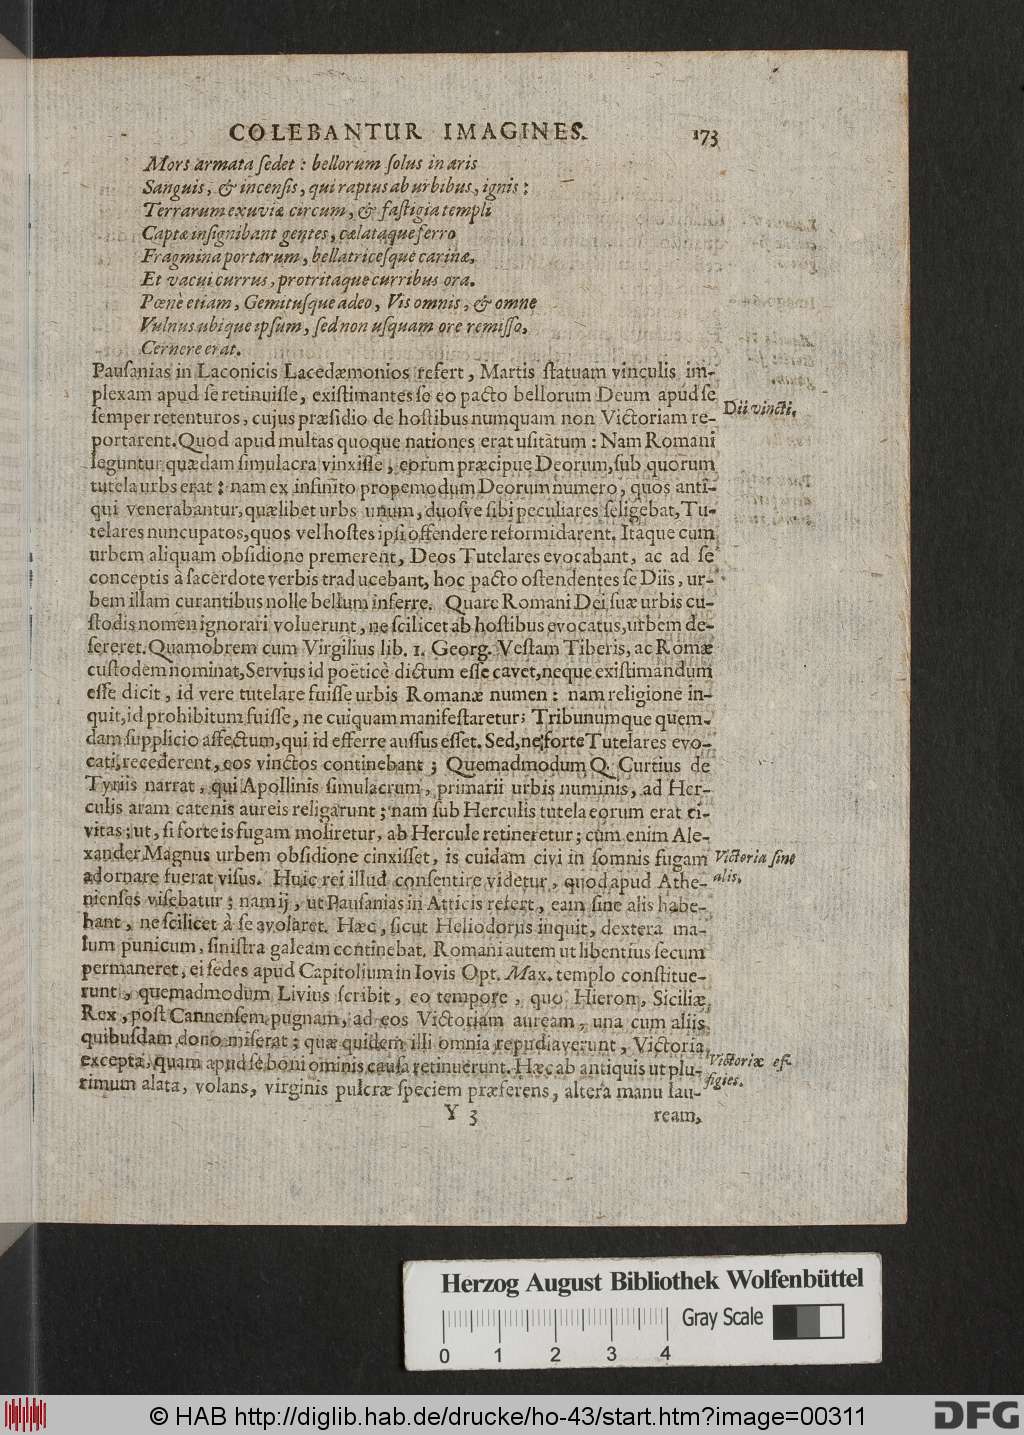 COLEBANTUR IMAGINES. 173
Mors armata ſedet : bellorum ſolus in aris
Sanguis, & incenſis, qui raptus ab urbibus, ignis :
Terrarum exuviæ circum, & faſtigia templi
Captæ inſignibant gentes, cælataque ferro
Fragmina portarum, bellatriceſque carinæ,
Et vacui currus, protritaque curribus ora.
Pœnè etiam, Gemituſque adeo, Vis omnis, & omne
Vulnus ubique ipſum, ſed non uſquam ore remiſſo,
Cernere erat.
Pauſanias in Laconicis Lacedæmonios refert, Martis ſtatuam vinculis im-
plexam apud ſe retinuiſſe, exiſtimantes ſe eo pacto bellorum Deum apud ſe
ſemper retenturos, cujus præſidio de hoſtibus numquam non Victoriam re-
portarent. Quod apud multas quoque nationes erat uſitatum : Nam Romani
leguntur quædam ſimulacra vinxiſſe, eorum præcipue Deorum, ſub quorum
tutela urbs erat : nam ex infinito propemodum Deorum numero, quos anti-
qui venerabantur, quælibet urbs unum, duoſve ſibi peculiares ſeligebat, Tu-
telares nuncupatos, quos vel hoſtes ipſi offendere reformidarent. Itaque cum
urbem aliquam obſidione premerent, Deos Tutelares evocabant, ac ad ſe
conceptis à ſacerdote verbis traducebant, hoc pacto oſtendentes ſe Diis, ur-
bem illam curantibus nolle bellum inferre. Quare Romani Dei ſuæ urbis cu-
ſtodis nomen ignorari voluerunt, ne ſcilicet ab hoſtibus evocatus, urbem de-
ſereret. Quamobrem cum Virgilius lib. 1. Georg. Veſtam Tiberis, ac Romæ
cuſtodem nominat, Servius id poëticè dictum eſſe cavet, neque exiſtimandum
eſſe dicit, id vere tutelare fuiſſe urbis Romanæ numen : nam religione in-
quit, id prohibitum fuiſſe, ne cuiquam manifeſtaretur; Tribunumque quem-
dam ſupplicio affectum, qui id efferre auſſus eſſet. Sed, ne forte Tutelares evo-
cati, recederent, eos vinctos continebant ; Quemadmodum Q. Curtius de
Tyriis narrat, qui Apollinis ſimulacrum, primarii urbis numinis, ad Her-
culis aram catenis aureis religarunt ; nam ſub Herculis tutela eorum erat ci-
vitas ; ut, ſi forte is fugam moliretur, ab Hercule retineretur ; cùm enim Ale-
xander Magnus urbem obſidione cinxiſſet, is cuidam civi in ſomnis fugam
adornare fuerat viſus. Huic rei illud conſentire videtur, quod apud Athe-
nienſes viſebatur ; nam ij, ut Pauſanias in Atticis refert, eam ſine alis habe-
bant, ne ſcilicet à ſe avolaret. Hæc, ſicut Heliodorus inquit, dextera ma-
lum punicum, ſiniſtra galeam continebat. Romani autem ut libentius ſecum
permaneret, ei ſedes apud Capitolium in Iovis Opt. Max. templo conſtitue-
runt, quemadmodum Livius ſcribit, eo tempore, quo Hieron, Siciliæ
Rex, poſt Cannenſem pugnam, ad eos Victoriam auream, una cum aliis
quibuſdam dono miſerat ; quæ quidem illi omnia repudiaverunt, Victoria
excepta, quam apud ſe boni ominis cauſa retinuerunt. Hæc ab antiquis ut plu-
rimum alata, volans, virginis pulcræ ſpeciem præferens, altera manu lau-
Y 3 ream,
Dii vincti.
Victoria ſine
alis.
Victoriæ ef-
figies.
Herzog August Bibliothek Wolfenbüttel
Gray Scale
0 1 2 3 4
© HAB http://diglib.hab.de/drucke/ho-43/start.htm?image=00311
DFG